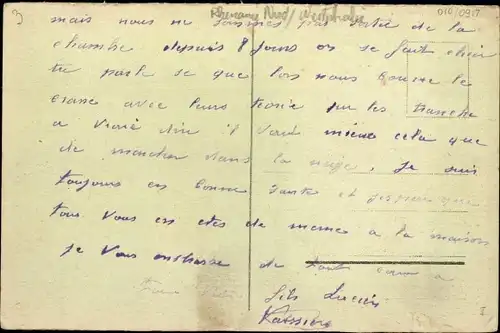 3
Rhenanie Nord/ Westphalie
mais nous ne sommes pas sortie de la
chambre depuis 8 jours on se fait chier
tu parle se que lors nous bourre le
crane avec leurs teorie sur les tranche
a vraie dire il vaut mieux cela que
de marcher dans la neige. je suis
toujours en bonne sante et j espere que
tous vous en etes de meme a la maison
je vous embrasse de tout coeur
fils Lucien